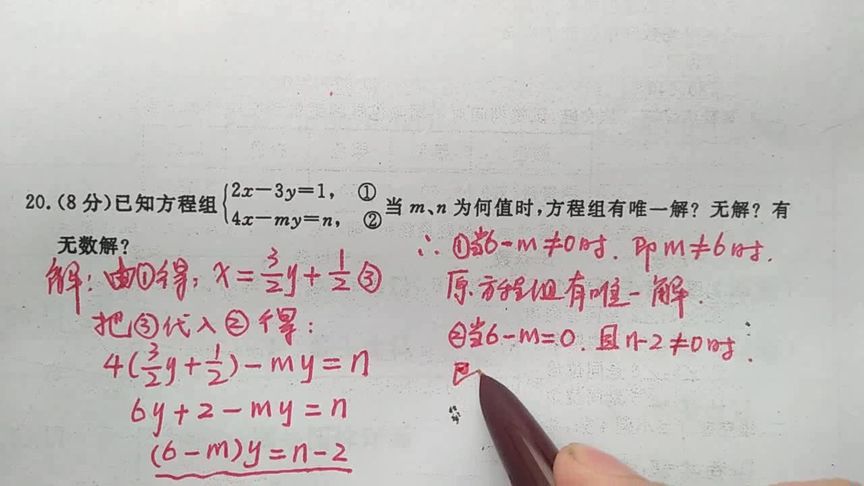 20.(8分)已知方程组{2x-3y=1, ① 4x-my=n, ② 当m、n为何值时,方程组有唯一解?无解?有
无数解?
解:由①得:x=3/2y+1/2③
把③代入②得:
4(3/2y+1/2)-my=n
6y+2-my=n
(6-m)y=n-2
∴①当6-m≠0时.即m≠6时.
原方程组有唯一解.
②当6-m=0.且n-2≠0时.